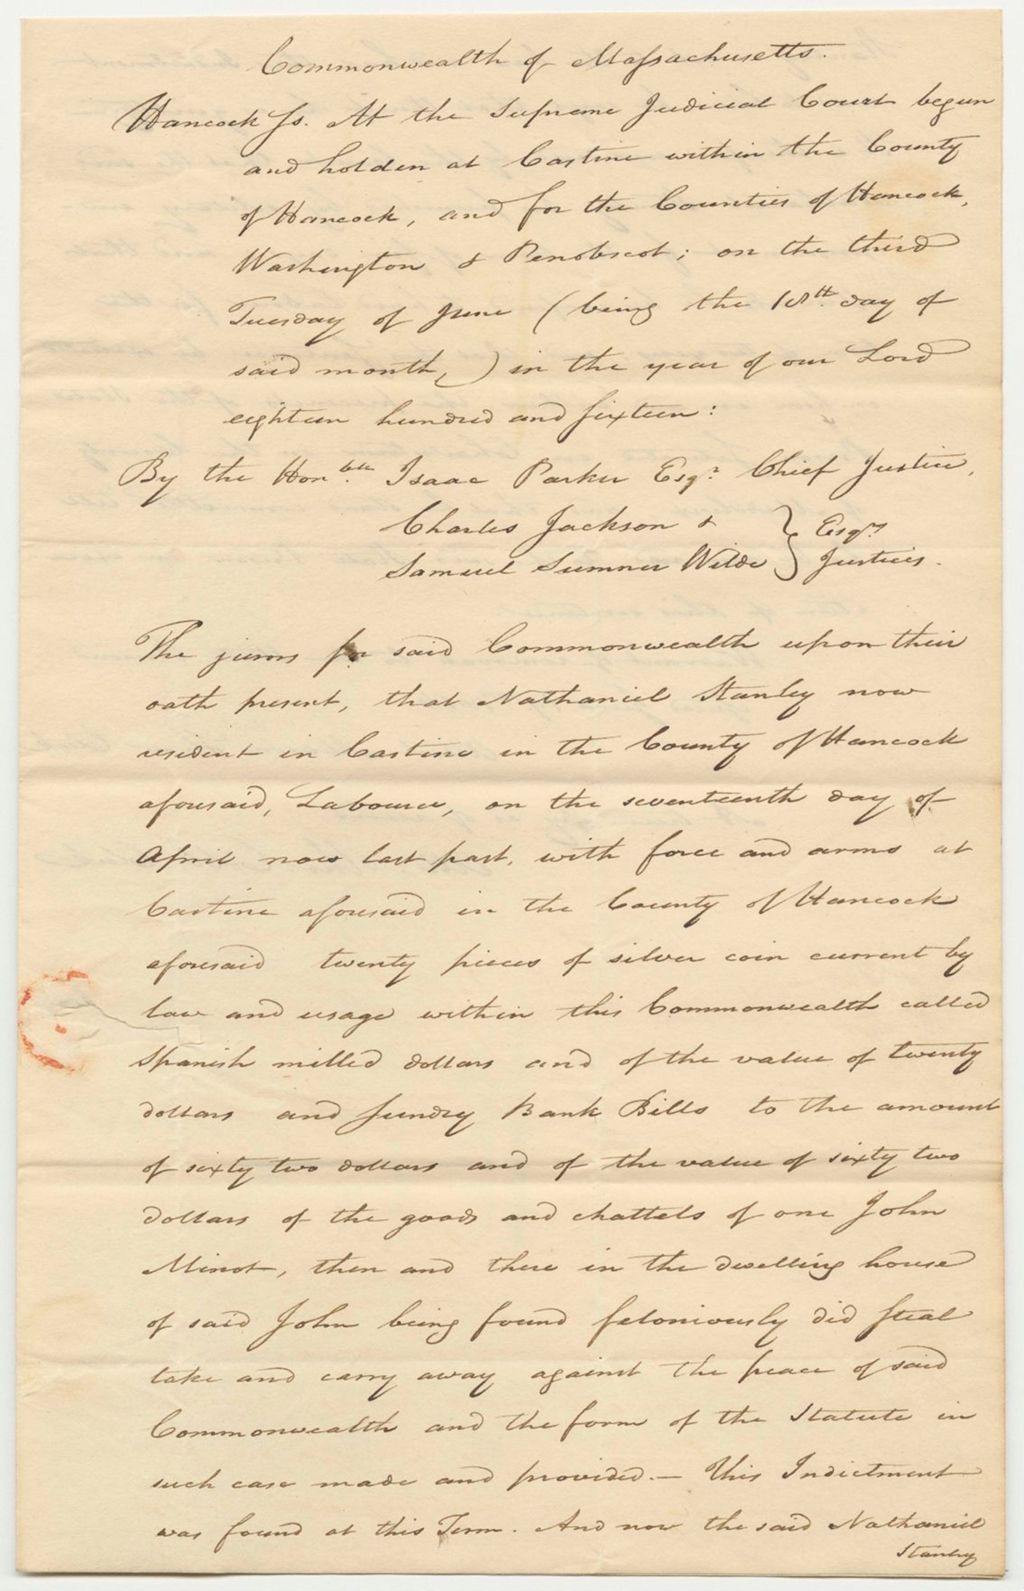 Commonwealth of Massachusetts.
Hancock Ss. At the Supreme Judicial Court begun
and holden at Castine within the County
of Hancock, and for the Counties of Hancock,
Washington & Penobscot; on the third
Tuesday of June (being the 18th day of
said month,) in the year of our Lord
eighteen hundred and sixteen:
By the Honble. Isaac Parker Esqr. Chief Justice,
Charles Jackson & } Esqrs
Samuel Sumner Wilde } Justices.
The jurors for said Commonwealth upon their
oath present, that Nathaniel Stanley now
resident in Castine in the County of Hancock
aforesaid, Labourer, on the seventeenth day of
April now last past, with force and arms at
Castine aforesaid in the County of Hancock
aforesaid twenty pieces of silver coin current by
law and usage within this Commonwealth called
Spanish milled dollars and of the value of twenty
dollars and sundry Bank Bills to the amount
of sixty two dollars and of the value of sixty two
dollars of the goods and chattels of one John
Minot, then and there in the dwelling house
of said John being found feloniously did steal
take and carry away against the peace of said
Commonwealth and the form of the Statute in
such case made and provided.— This Indictment
was found at this Term. And now the said Nathaniel
Stanley